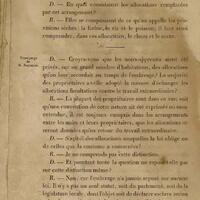 D. — En quoi consistaient les allocations comprises
par cet arrangement?
R. — Elles se composaient de ce qu'on appelle les pro-
visions sèches : la farine, le riz et le poisson; il faut aussi
comprendre, dans ces allocations, le choux et le
D. — Croyez-vous que les noirs-apprentis aient été
privés, sur un grand nombre d'habitations, des allocations
qu'on leur accordait au temps de l'esclavage? La majorité
des propriétaires a-t-elle adopté la mesure d'échanger les
allocations facultatives contre le travail extraordinaire?
R. — La plupart des propriétaires sont dans ce cas, soit
qu'une convention de cette nature ait été exprimée ou sous-
entendue, il est toujours compris dans les arrangements
entre les propriétaires et les apprentis, que les allocations se-
ront données qu'en retour du travail extraordinaire.
D. — S'agit-il des allocations auxquelles la loi oblige ou
de celles que la coutume a consacrées?
R. — Je ne comprends pas votre distinction.
D. — Et pendant toute la question ne repose-t-elle que
sur cette distinction même?
R. — Non; car l'esclavage n'a jamais reposé sur aucune
loi. Il n'y a pas un seul statut, soit du parlement, soit de la
législature locale, dont l'objet soit de déclarer esclave